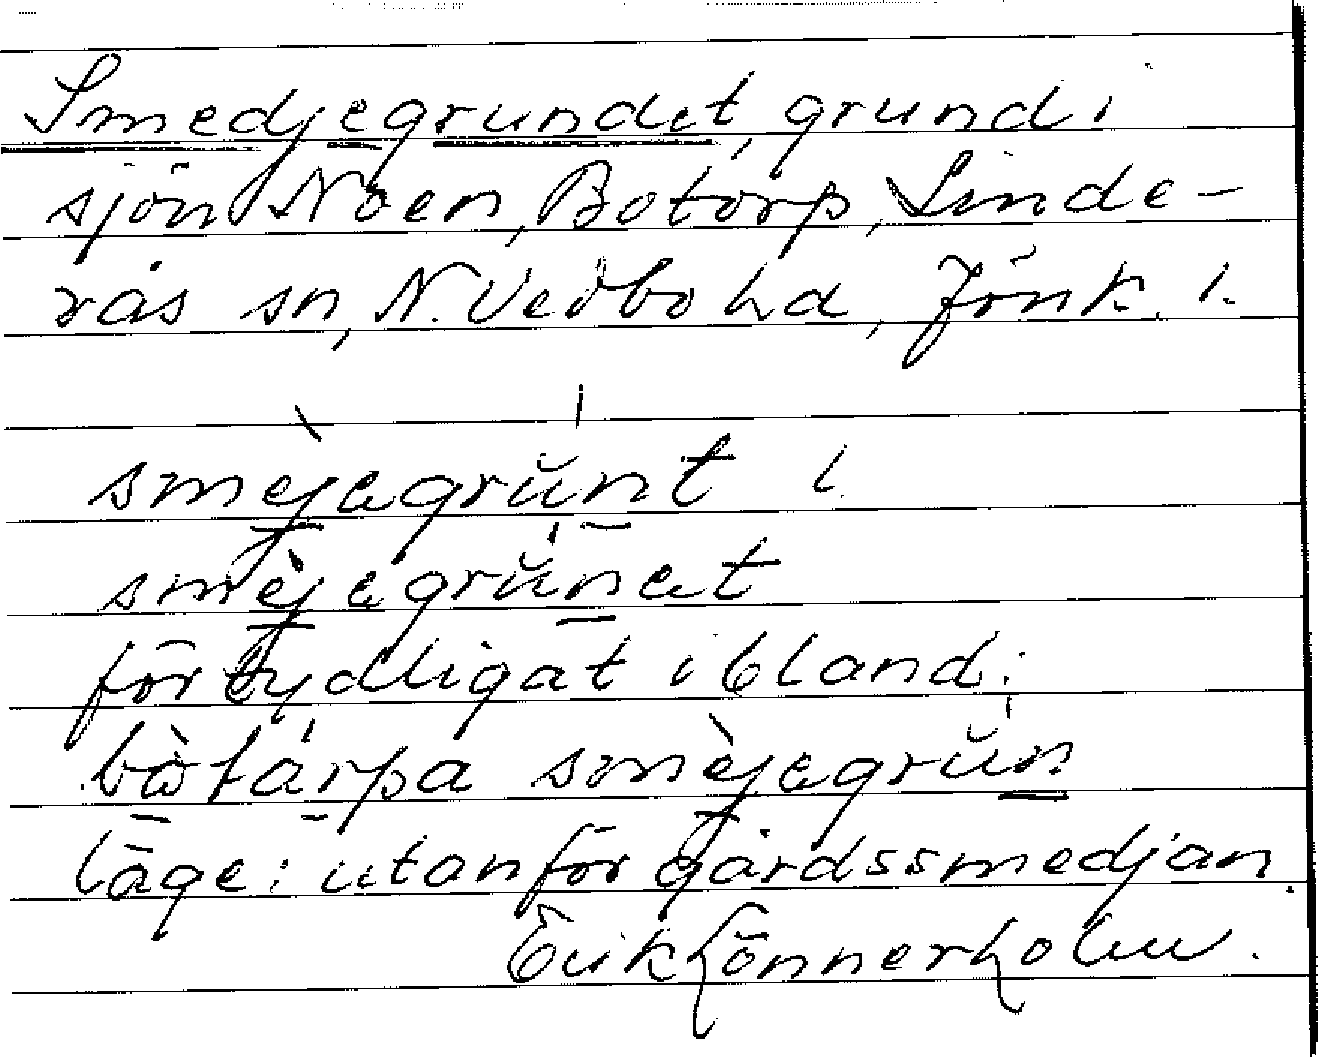 Smedjegrundet, grund i
sjön Noen, Botorp, Linde-
rås sn, N. Vedbo hd, Jönk. l.
smèjegrŭnt l.
smèjegrŭnet
förtydligat ibland:
bòtårpa smèjegrŭn
läge: utanför gårdssmedjan.
Erik Lönnerholm.